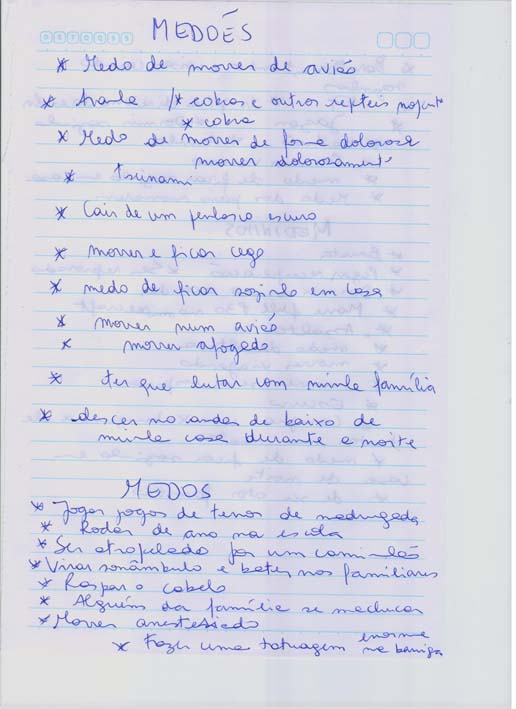 MEDOÉS
* Medo de morrer de avião
* Aranha /* cobras e outros repteis nojento
* cobra
* Medo de morrer de forma dolorosa
morrer dolorosamente
* tsunami
* Cair de um penhasco escuro
* morrer e ficar cego
* medo de ficar sozinho em casa
* morrer num avião
* morrer afogado
* ter que lutar com minha família
* descer no andar de baixo de
minha casa durante a noite
MEDOS
* Jogar jogos de terror de madrugada
* Rodar de ano na escola
* Ser atropelado por um caminhão
* Virar sonâmbulo e bater nos familiares
* Raspar o cabelo
* Alguém da família se machucar
* Morrer anestesiado
* Fazer uma tatuagem enorme na barriga